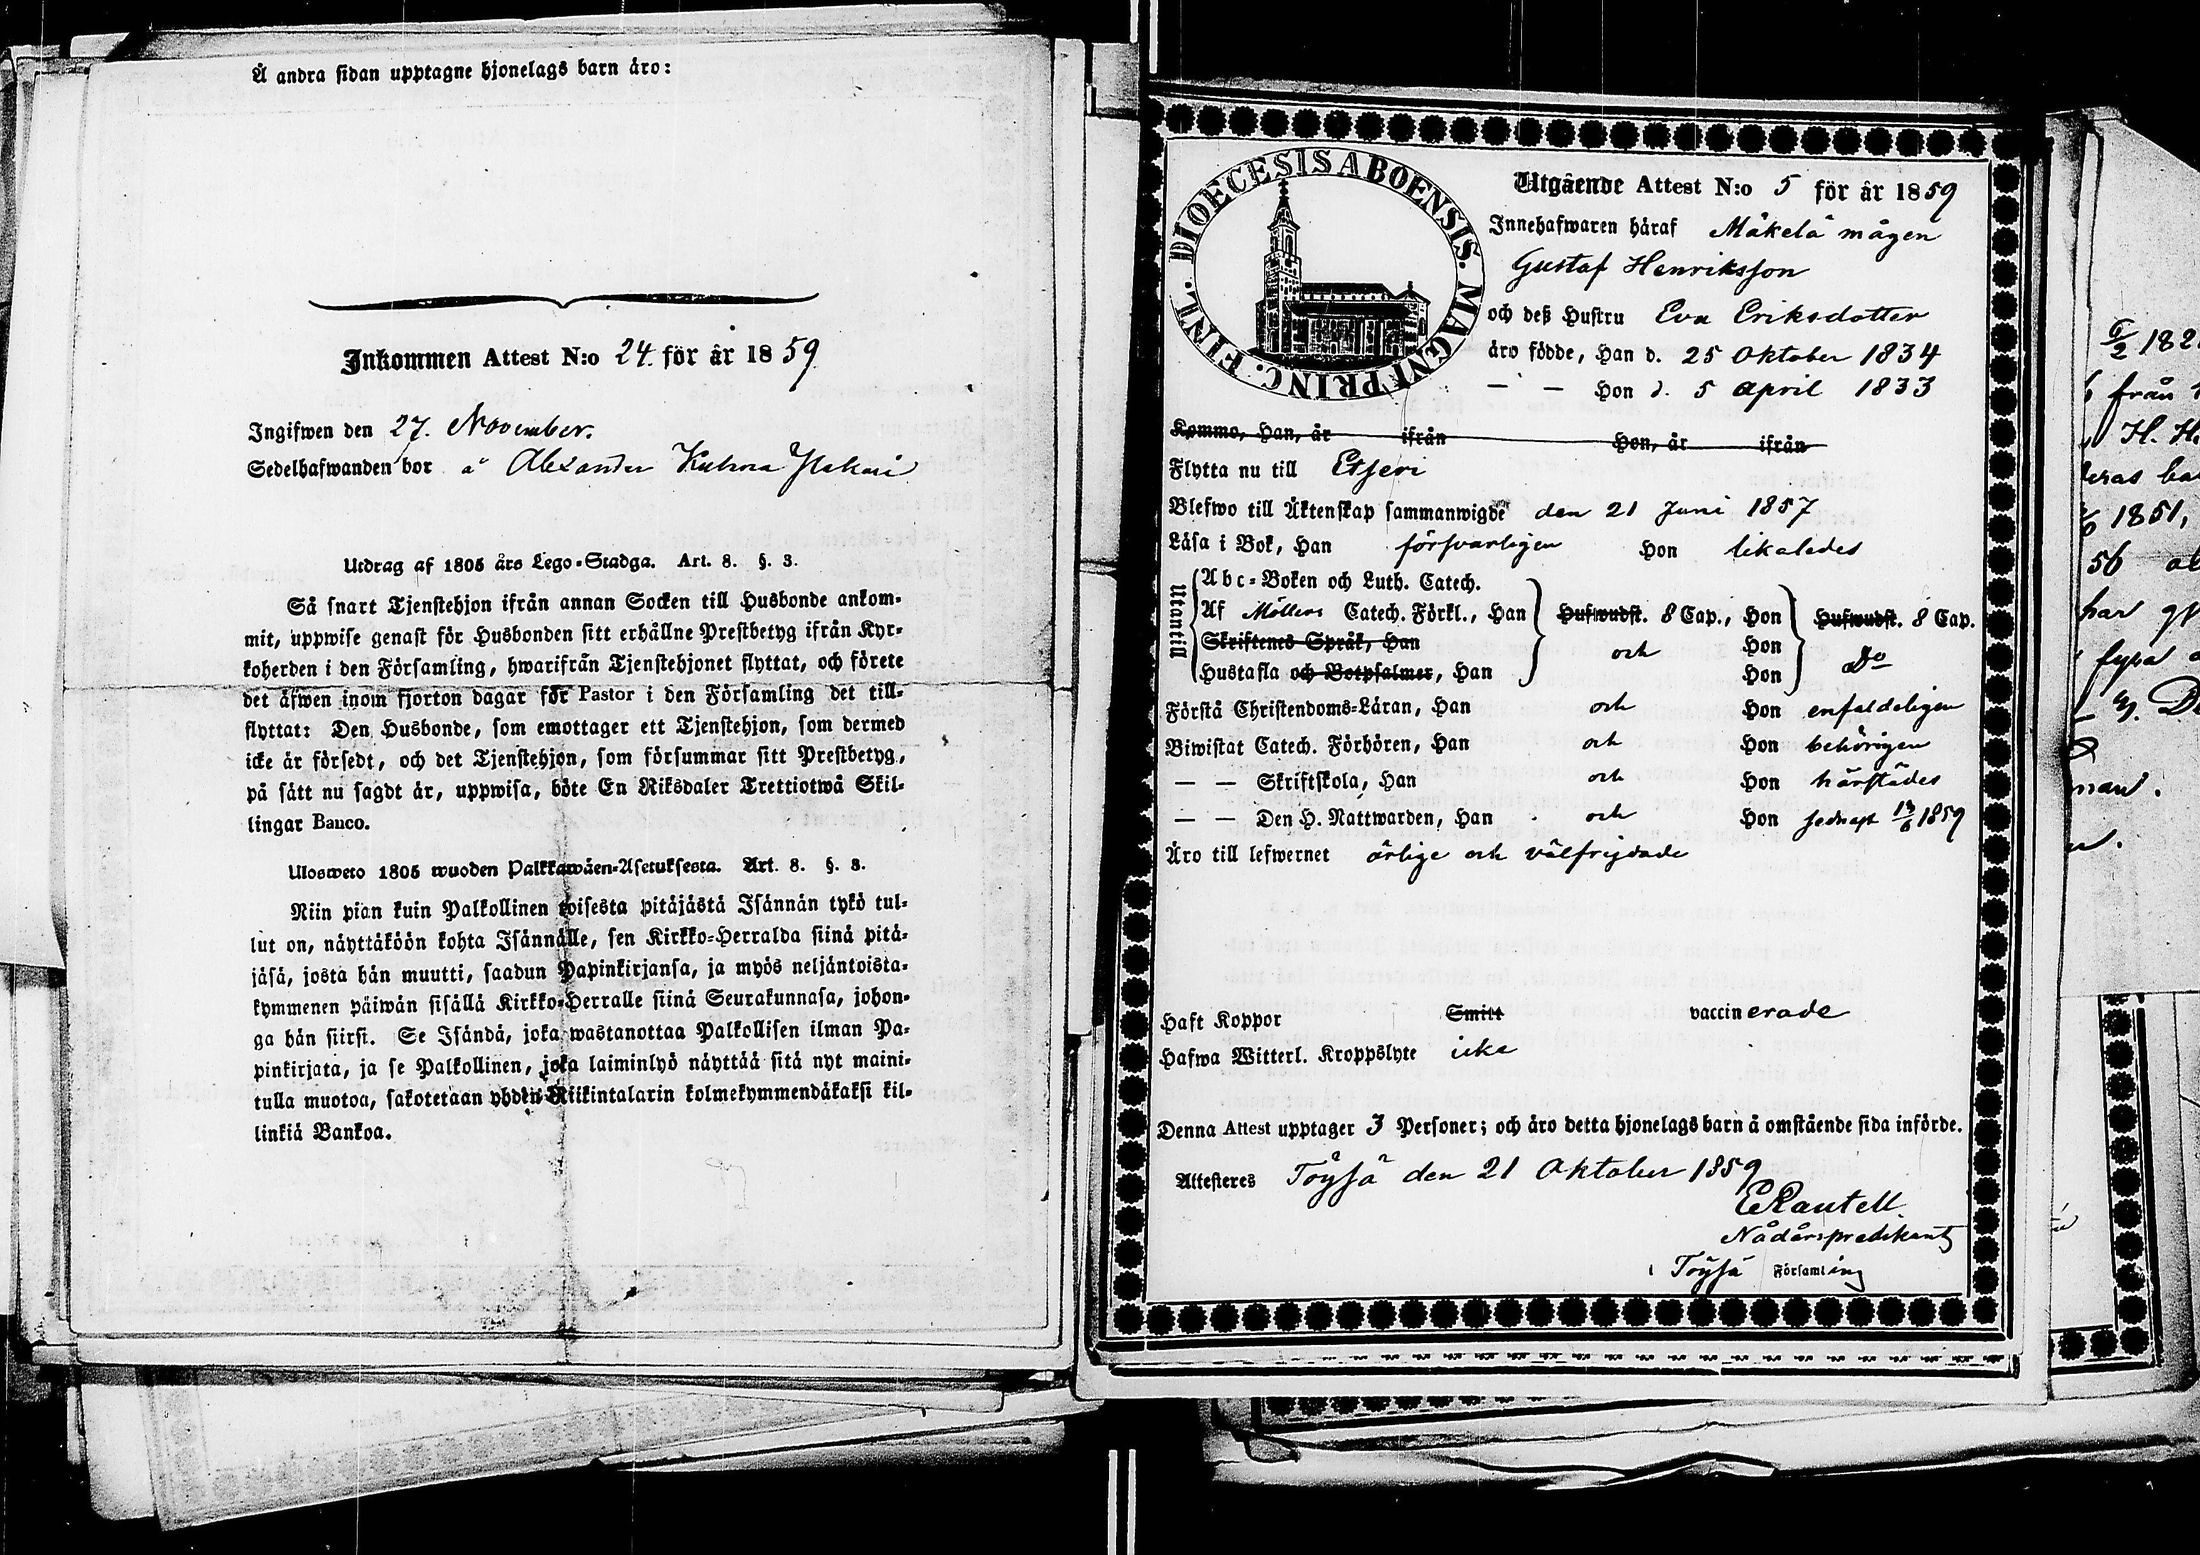 Å andra sidan upptagne hjonelags barn äro:
Inkommen Attest N:o 24. för år 1859.
Ingifwen den 27. November.
Sedelhafwanden bor å Alexander
Utdrag af 1805 års Lego-Stadga. Art. 8. §. 3.
Så snart Tjenstehjon ifrån annan Socken till Husbonde ankom-
mit, uppwise genast för Husbonden sitt erhållne Prestbetyg ifrån Kyr-
koherden i den Församling, hwarifrån Tjenstehjonet flyttat, och förete
det äfwen inom fjorton dagar för Pastor i den Församling det till-
flyttat: Den Husbonde, som emottager ett Tjenstehjon, som dermed
icke är försedt, och det Tjenstehjon, som försummar sitt Prestbetyg,
på sätt nu sagdt är, uppwisa, böte En Riksdaler Trettiotwå Skil-
lingar Banco.
Ulosweto 1805 wuoden Palkkawäen-Asetuksesta. Art. 8. §. 3.
Niin pian kuin Palkollinen toisesta pitäjästä Isännän tykö tul-
lut on, näyttäköön kohta Isännälle, sen Kirkko-Herralda siinä pitä-
jäsä, josta hän muutti, saadun Papinkirjansa, ja myös neljäntoista-
kymmenen päiwän sisällä Kirkko-Herralle siinä Seurakunnasa, johon-
ga hän siirsi. Se Isändä, joka wastanottaa Palkollisen ilman Pa-
pinkirjata, ja se Palkollinen, joka laiminlyö näyttää sitä nyt maini-
tulla muotoa, sakotetaan yhden Riikintalarin kolmekymmendäkaksi kil-
linkiä Bankoa.
DIOECESIS ABOENSIS. MAGNI PRINC. FINL.
Utgående Attest N:o 5 för år 1859
Innehafwaren häraf Mäkelä mågen
Gustaf Henriksson
och deß Hustru Eva Eriksdotter
äro födde, Han d. 25 Oktober 1834
— — Hon d. 5 April 1833
Kommo, Han, år ifrån Hon, år ifrån
Flytta nu till Etseri
Blefwo till Äktenskap sammanwigde den 21 Juni 1857
Läsa i Bok, Han försvarligen Hon likaledes
Utantill
Abc-Boken och Luth. Catech.
Af Möllers Catech. Förkl., Han Hufwudst. 8 Cap., Hon Hufwudst. 8 Cap.
Skriftenes Språk, Han och Hon Do
Hustafla och Botpsalmer, Han Hon
Förstå Christendoms-Läran, Han och Hon enfaldeligen
Biwistat Catech. Förhören, Han och Hon behörigen
— — Skriftskola, Han och Hon härstädes
— — Den H. Nattwarden, Han och Hon sednast 13/6 1859
Äro till lefwernet ärlige och välfrejdade
Haft Koppor Smitt vaccinerade
Hafwa Witterl. Kroppslyte icke
Denna Attest upptager 3 Personer; och äro detta hjonelags barn å omstående sida införde.
Attesteras Töysä den 21 Oktober 1859
E Rautell
Nådårspredikant
i Töysä Församling
6/2 182
från
H. H
1851,
56
har
fyra